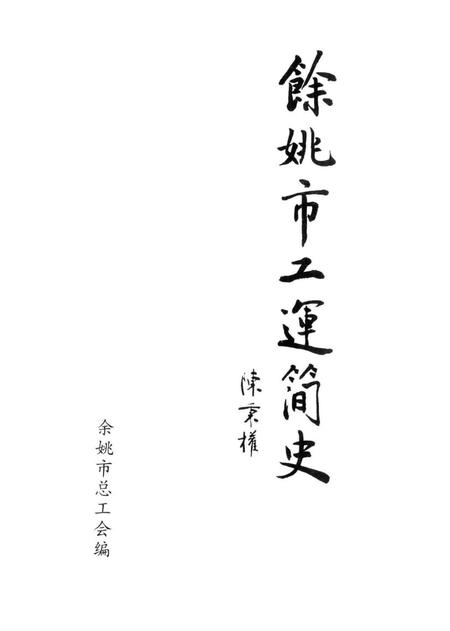 餘姚市工運简史
陳秉權
余姚市总工会编